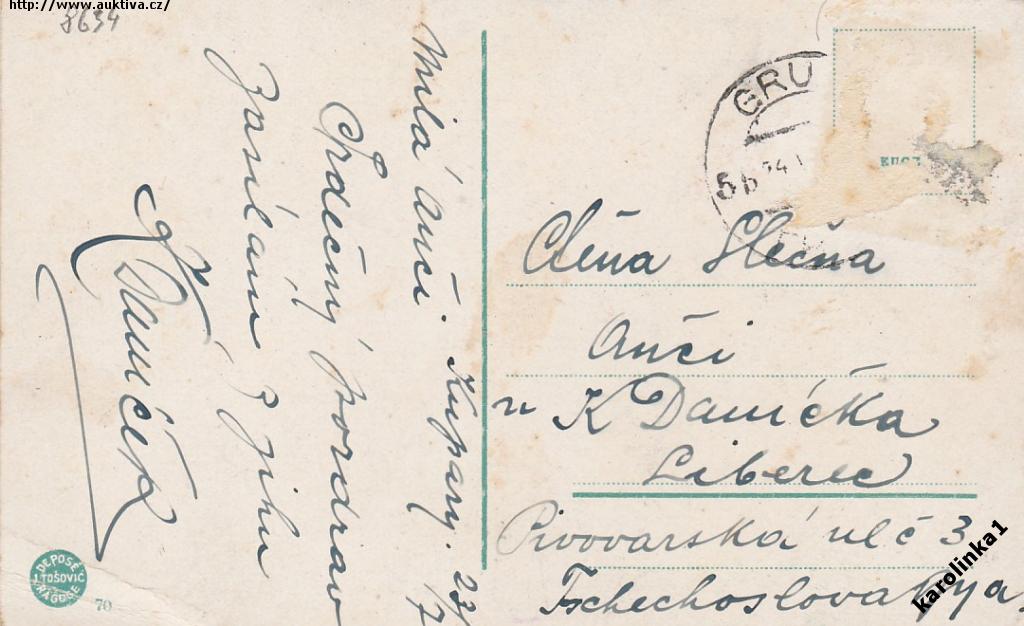 http://www.auktiva.cz/
8634
Milá Anči. Kupary. 23/7
Srdečný pozdrav
Zasílám z jihu
Daníček
GRU
Ctěná Slečna
Anči
u K Daníčka
Liberec
Pivovarská ul č 3
Tschechoslovakya.
DEPOSÉ
J. TOŠOVIĆ
RAGUSE
70
karolinka1